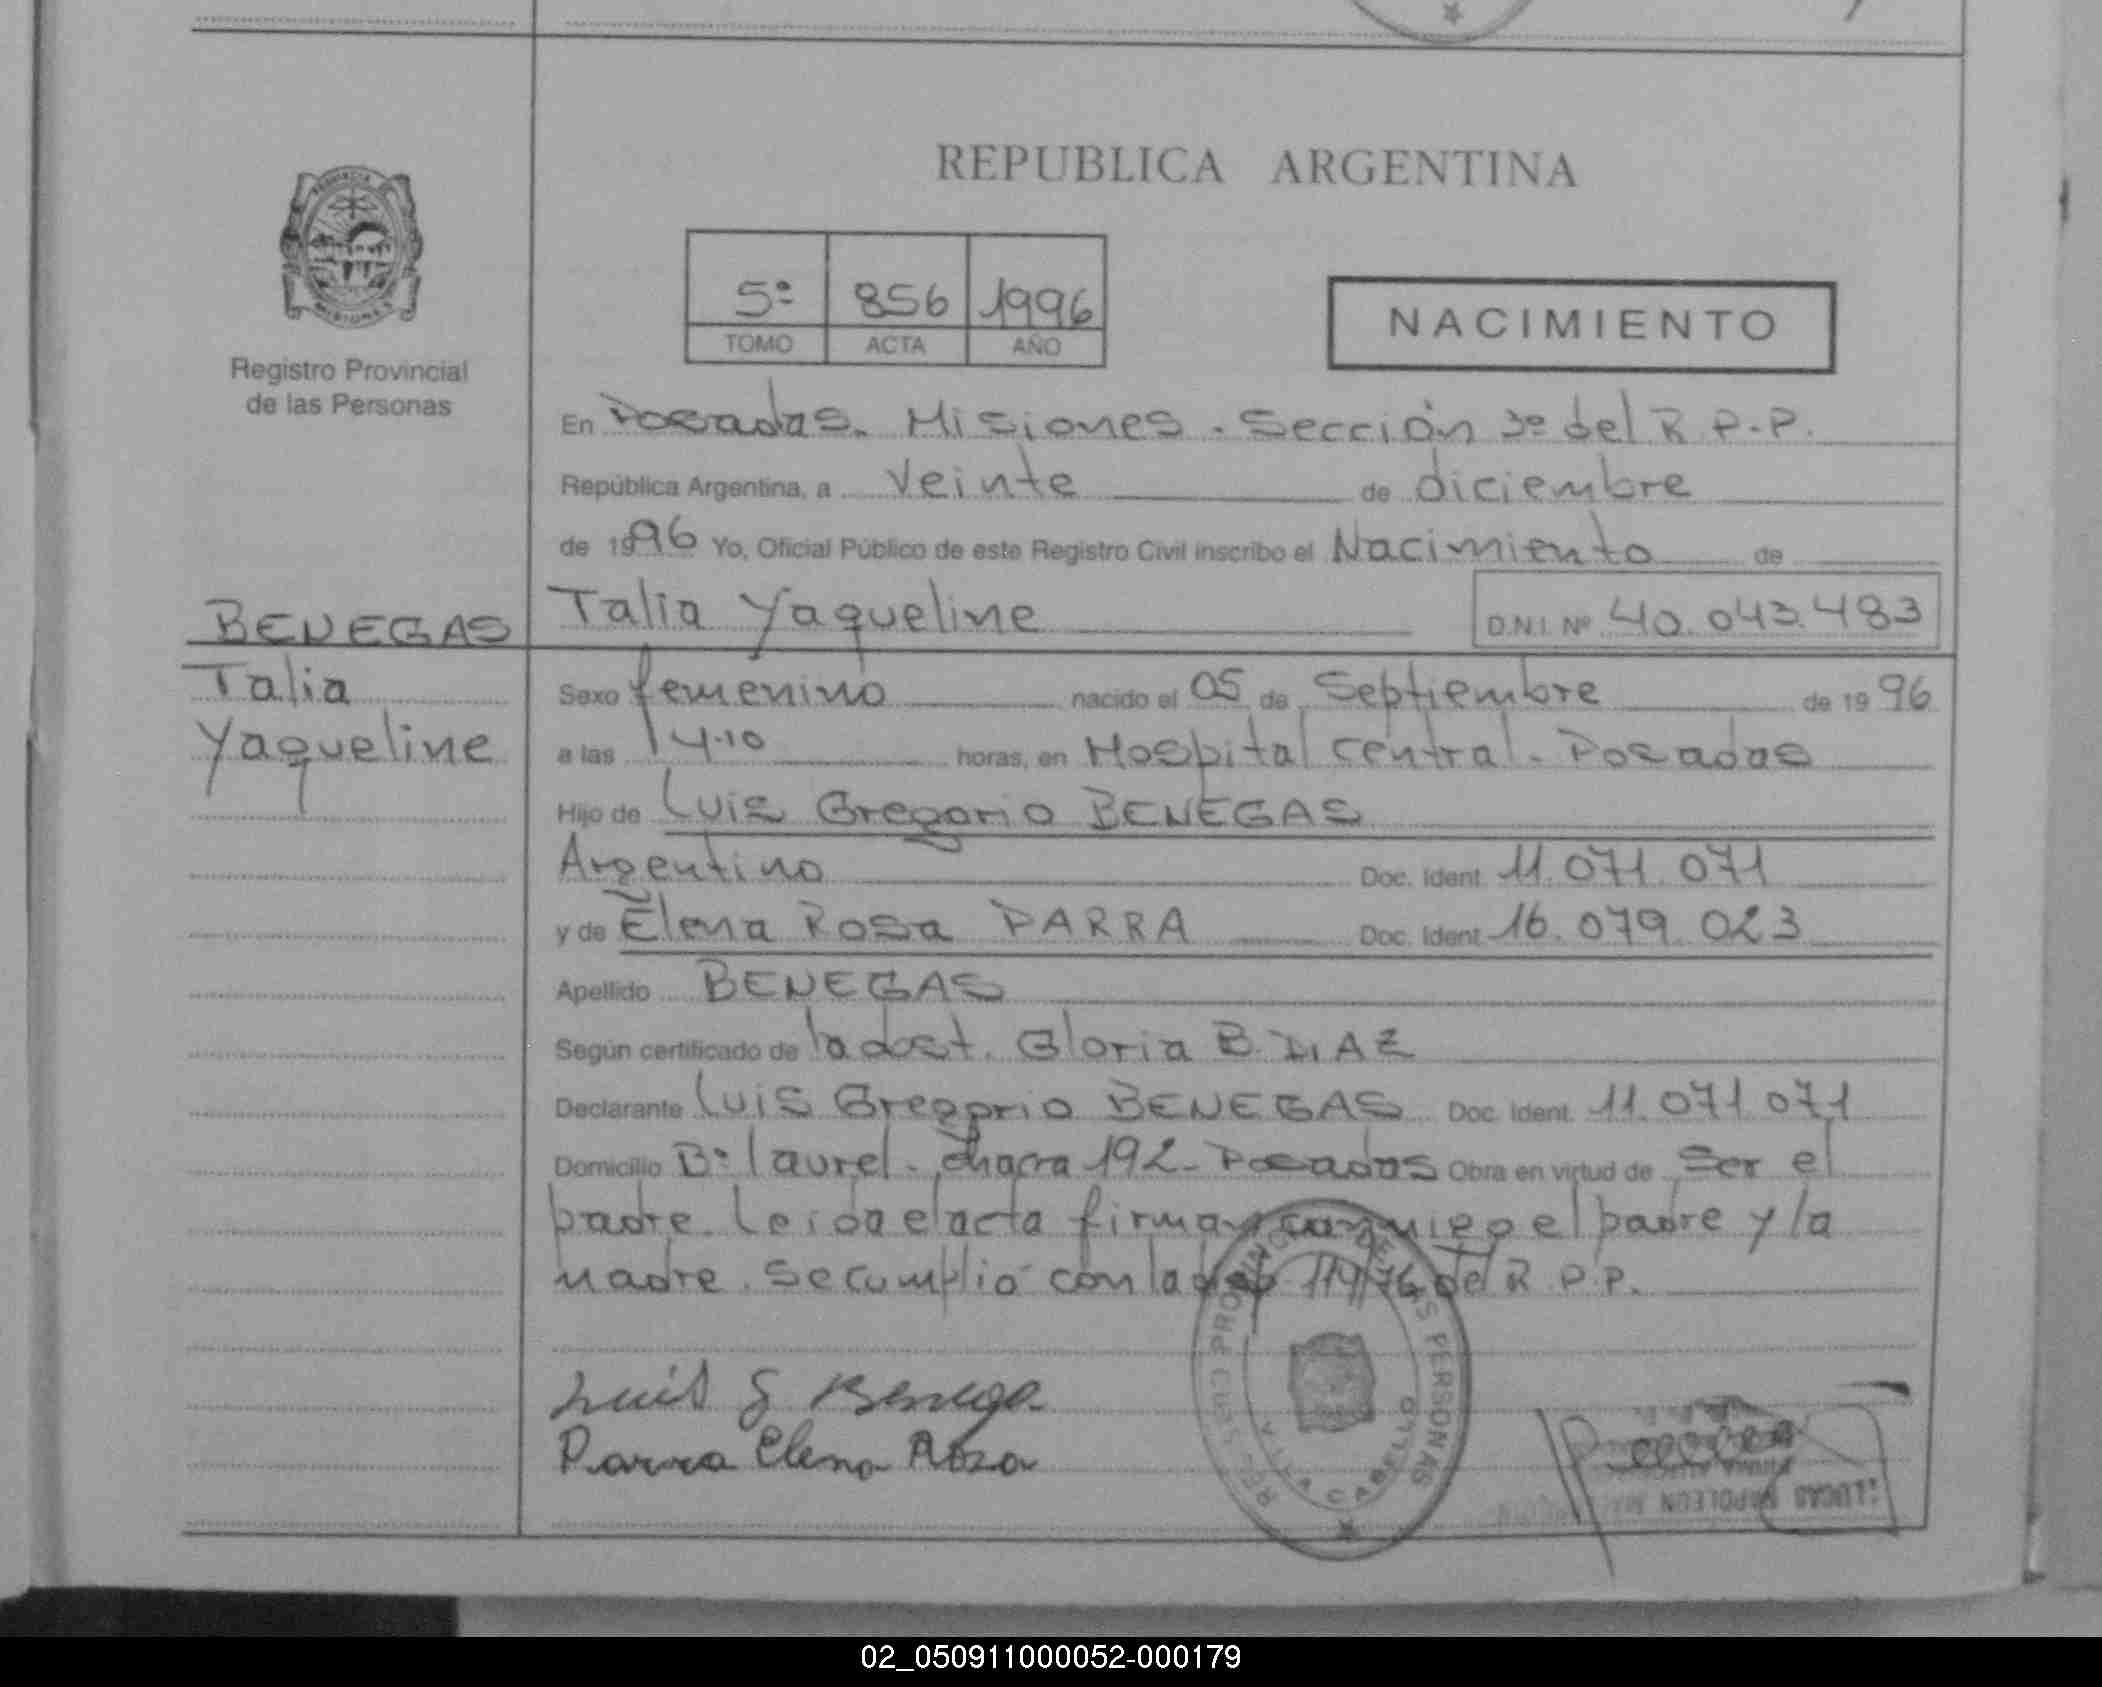 REPUBLICA ARGENTINA
PROVINCIA DE
MISIONES
Registro Provincial
de las Personas
5º 856 1996
TOMO ACTA AÑO
NACIMIENTO
En Posadas. Misiones. Sección 3º del R.P.P.
República Argentina, a veinte de diciembre
de 1996 Yo, Oficial Público de este Registro Civil inscribo el Nacimiento de
BENEGAS Talia Yaqueline D.N.I. Nº 40.043.483
Talia
Yaqueline
Sexo femenino nacido el 05 de Septiembre de 1996
a las 14.10 horas, en Hospital central. Posadas
Hijo de Luis Gregorio BENEGAS
Argentino Doc. Ident. 11.071.071
y de Elena Rosa PARRA Doc. Ident. 16.079.023
Apellido BENEGAS
Según certificado de la obst. Gloria B. DIAZ
Declarante Luis Gregorio BENEGAS Doc. Ident. 11.071.071
Domicilio Bº laurel. chacra 192- Posadas Obra en virtud de Ser el
padre. Leida el acta firman conmigo el padre y la
madre. Se cumplió con la 119/76 del R.P.P.
Luis G Benega
Parra Elena Roza
REG. PROVINCIAL DE LAS PERSONAS
VILLA CABELLO
LUCAS NAPOLEON
02_050911000052-000179